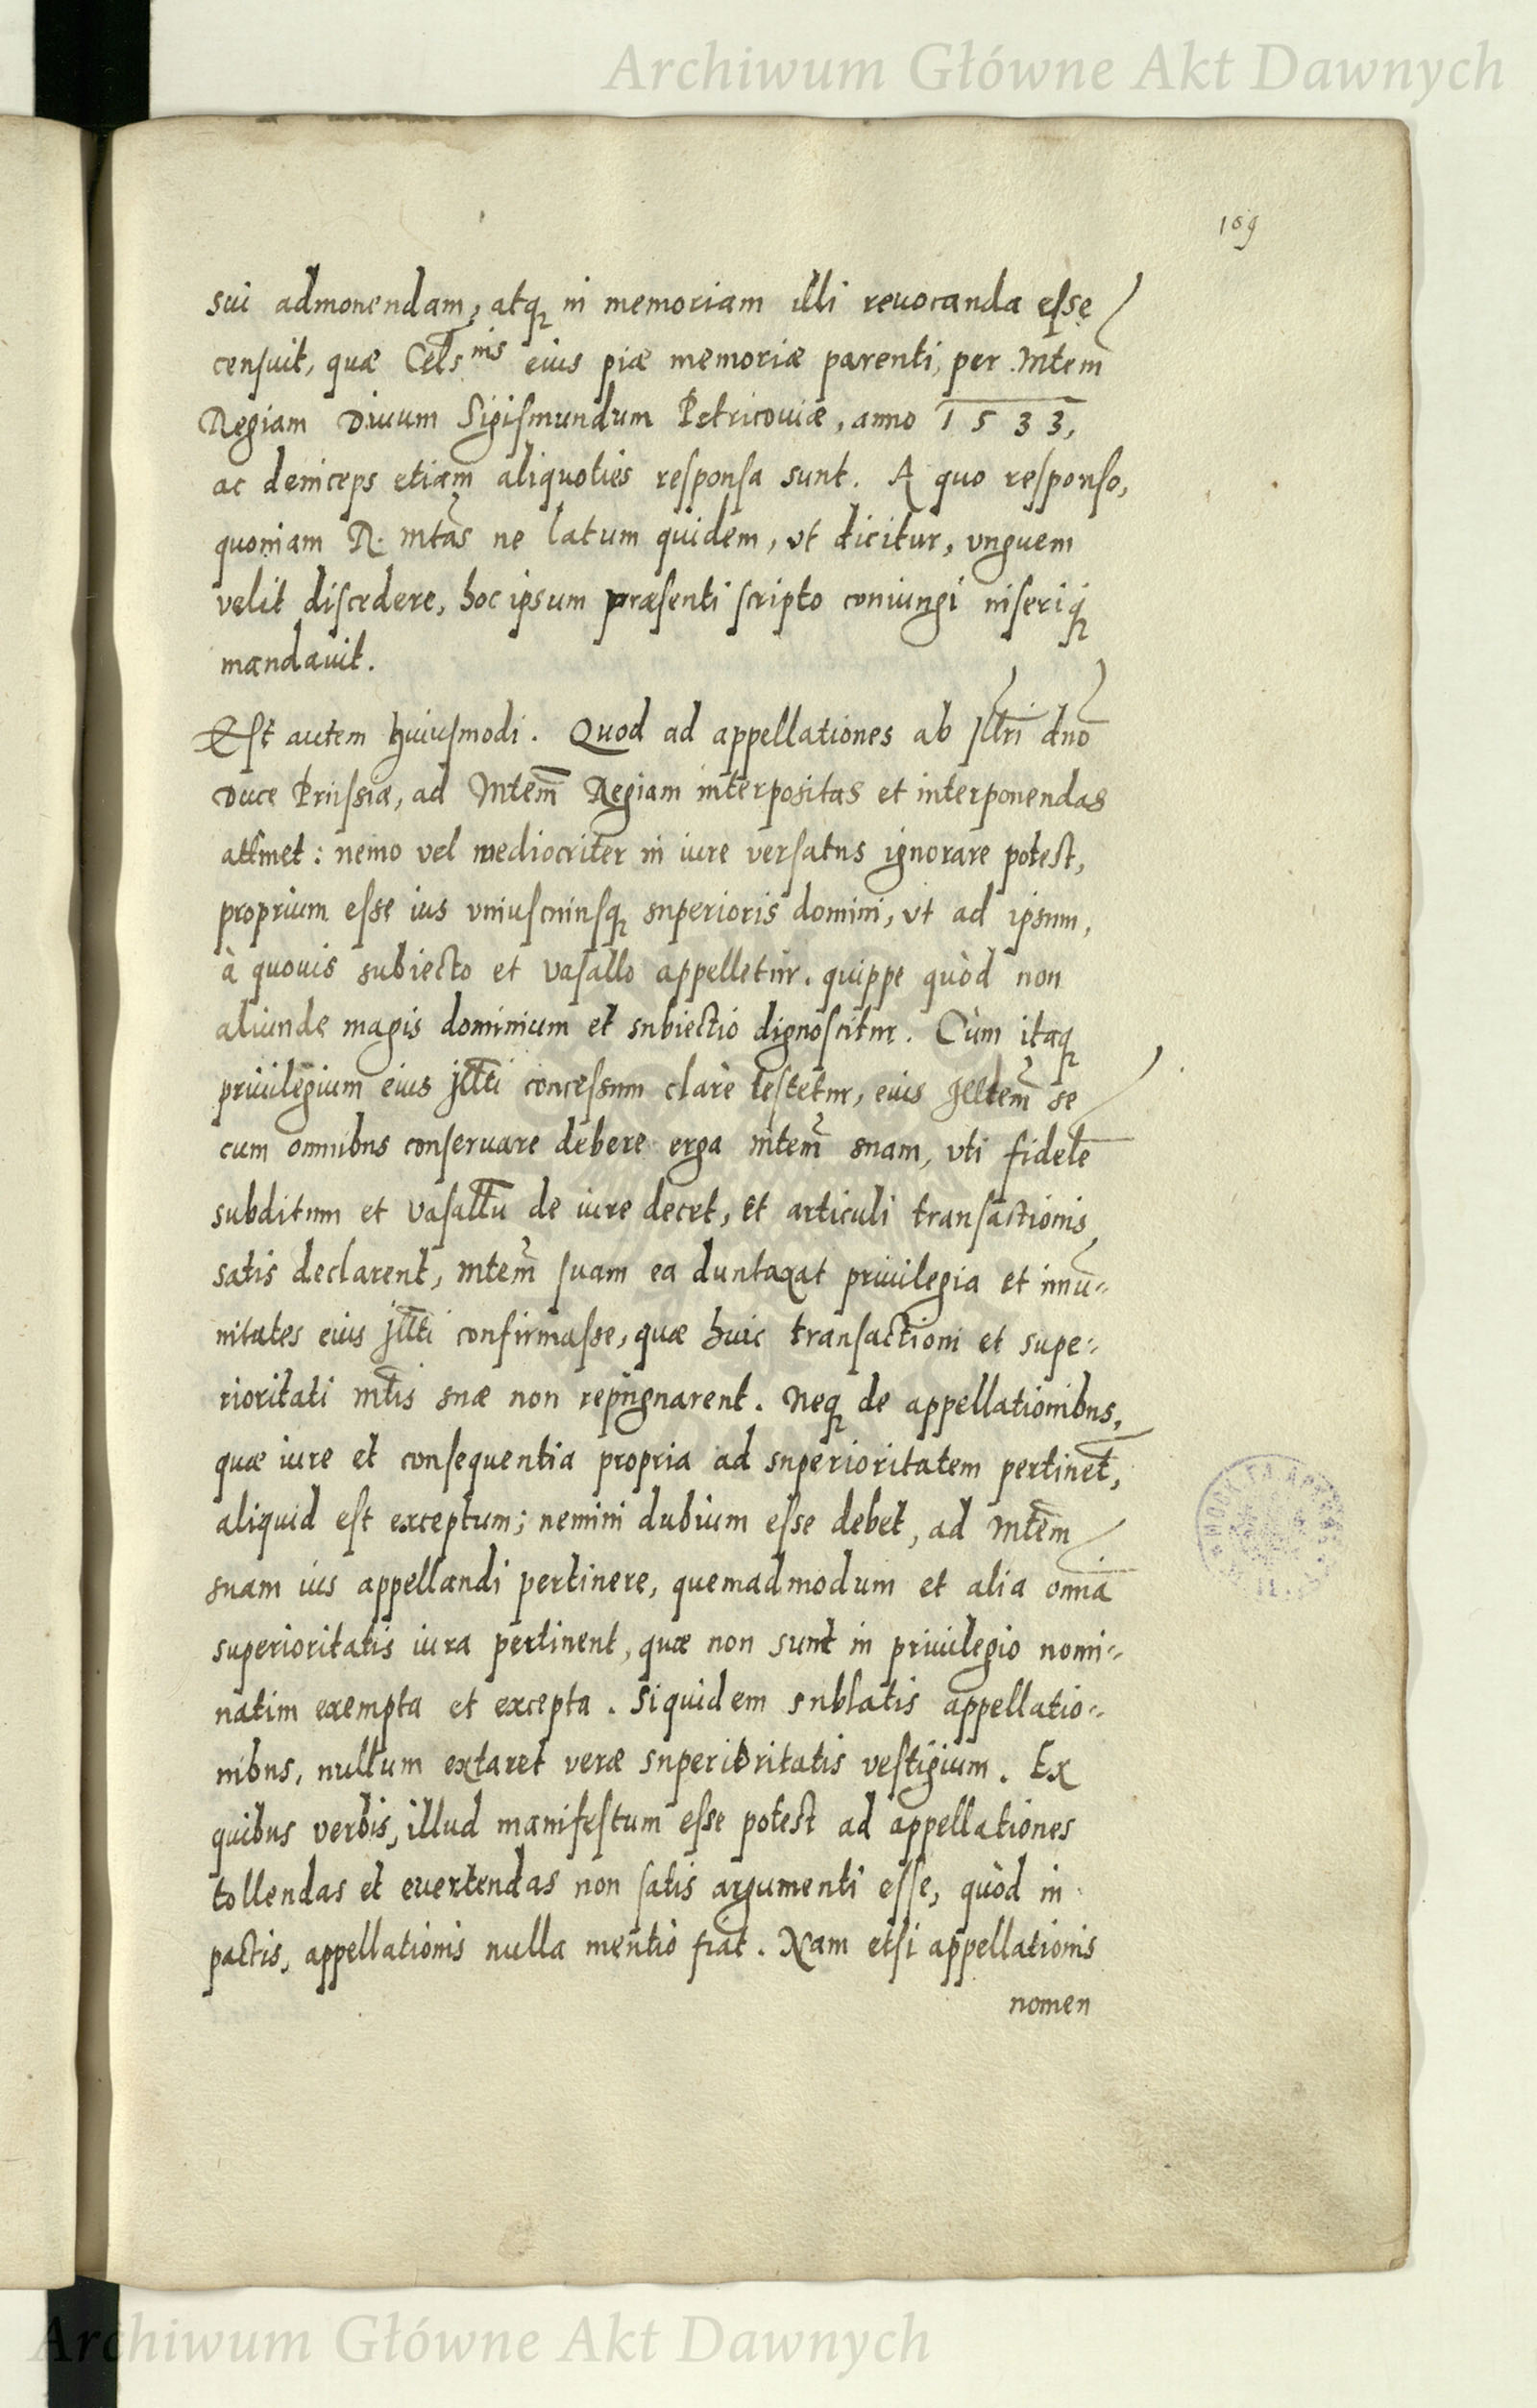 Archiwum Główne Akt Dawnych
169
sui admonendam, atq in memoriam illi reuocanda esse
censuit, quæ Cels nis eius piæ memoriæ parenti, per Mtem
Regiam Diuum Sigismundum Petricouiæ, anno 1533,
ac deinceps etiam aliquoties responsa sunt. A quo responso,
quoniam R. Mtas ne latum quidem, vt dicitur, vnguem
velit discedere, hoc ipsum præsenti scripto coniungi inseriq
mandauit.
Est autem huiusmodi. Quod ad appellationes ab Illri dno
Duce Prussiæ, ad Mtem Regiam interpositas et interponendas
attinet: nemo vel mediocriter in iure versatus ignorare potest,
proprium esse ius vniuscuiusq superioris domini, vt ad ipsum,
à quouis subiecto et vasallo appelletur. quippe quòd non
aliunde magis dominium et subiectio dignoscitur. Cùm itaq
priuilegium eius Illti concessum clarè testetur, eius Illtem se
cum omnibus conseruare debere erga Mtem suam, vti fidelē
subditum et vasallū de iure decet, et articuli transactionis
satis declarent, Mtem suam ea duntaxat priuilegia et im̄u-
nitates eius Illti confirmasse, quæ huic transactioni et supe-
rioritati Mtis suæ non repugnarent. Neq de appellationibus,
quæ iure et consequentia propria ad superioritatem pertinet,
aliquid est exceptum; nemini dubium esse debet, ad Mtem
suam ius appellandi pertinere, quemadmodum et alia omnia
superioritatis iura pertinent, quæ non sunt in priuilegio nomi-
natim exempta et excepta. Siquidem sublatis appellatio-
nibus, nullum extaret veræ superioritatis vestigium. Ex
quibus verbis, illud manifestum esse potest ad appellationes
tollendas et euertendas non satis argumenti esse, quòd in
pactis, appellationis nulla mentio fiat. Nam etsi appellationis
nomen
Archiwum Główne Akt Dawnych